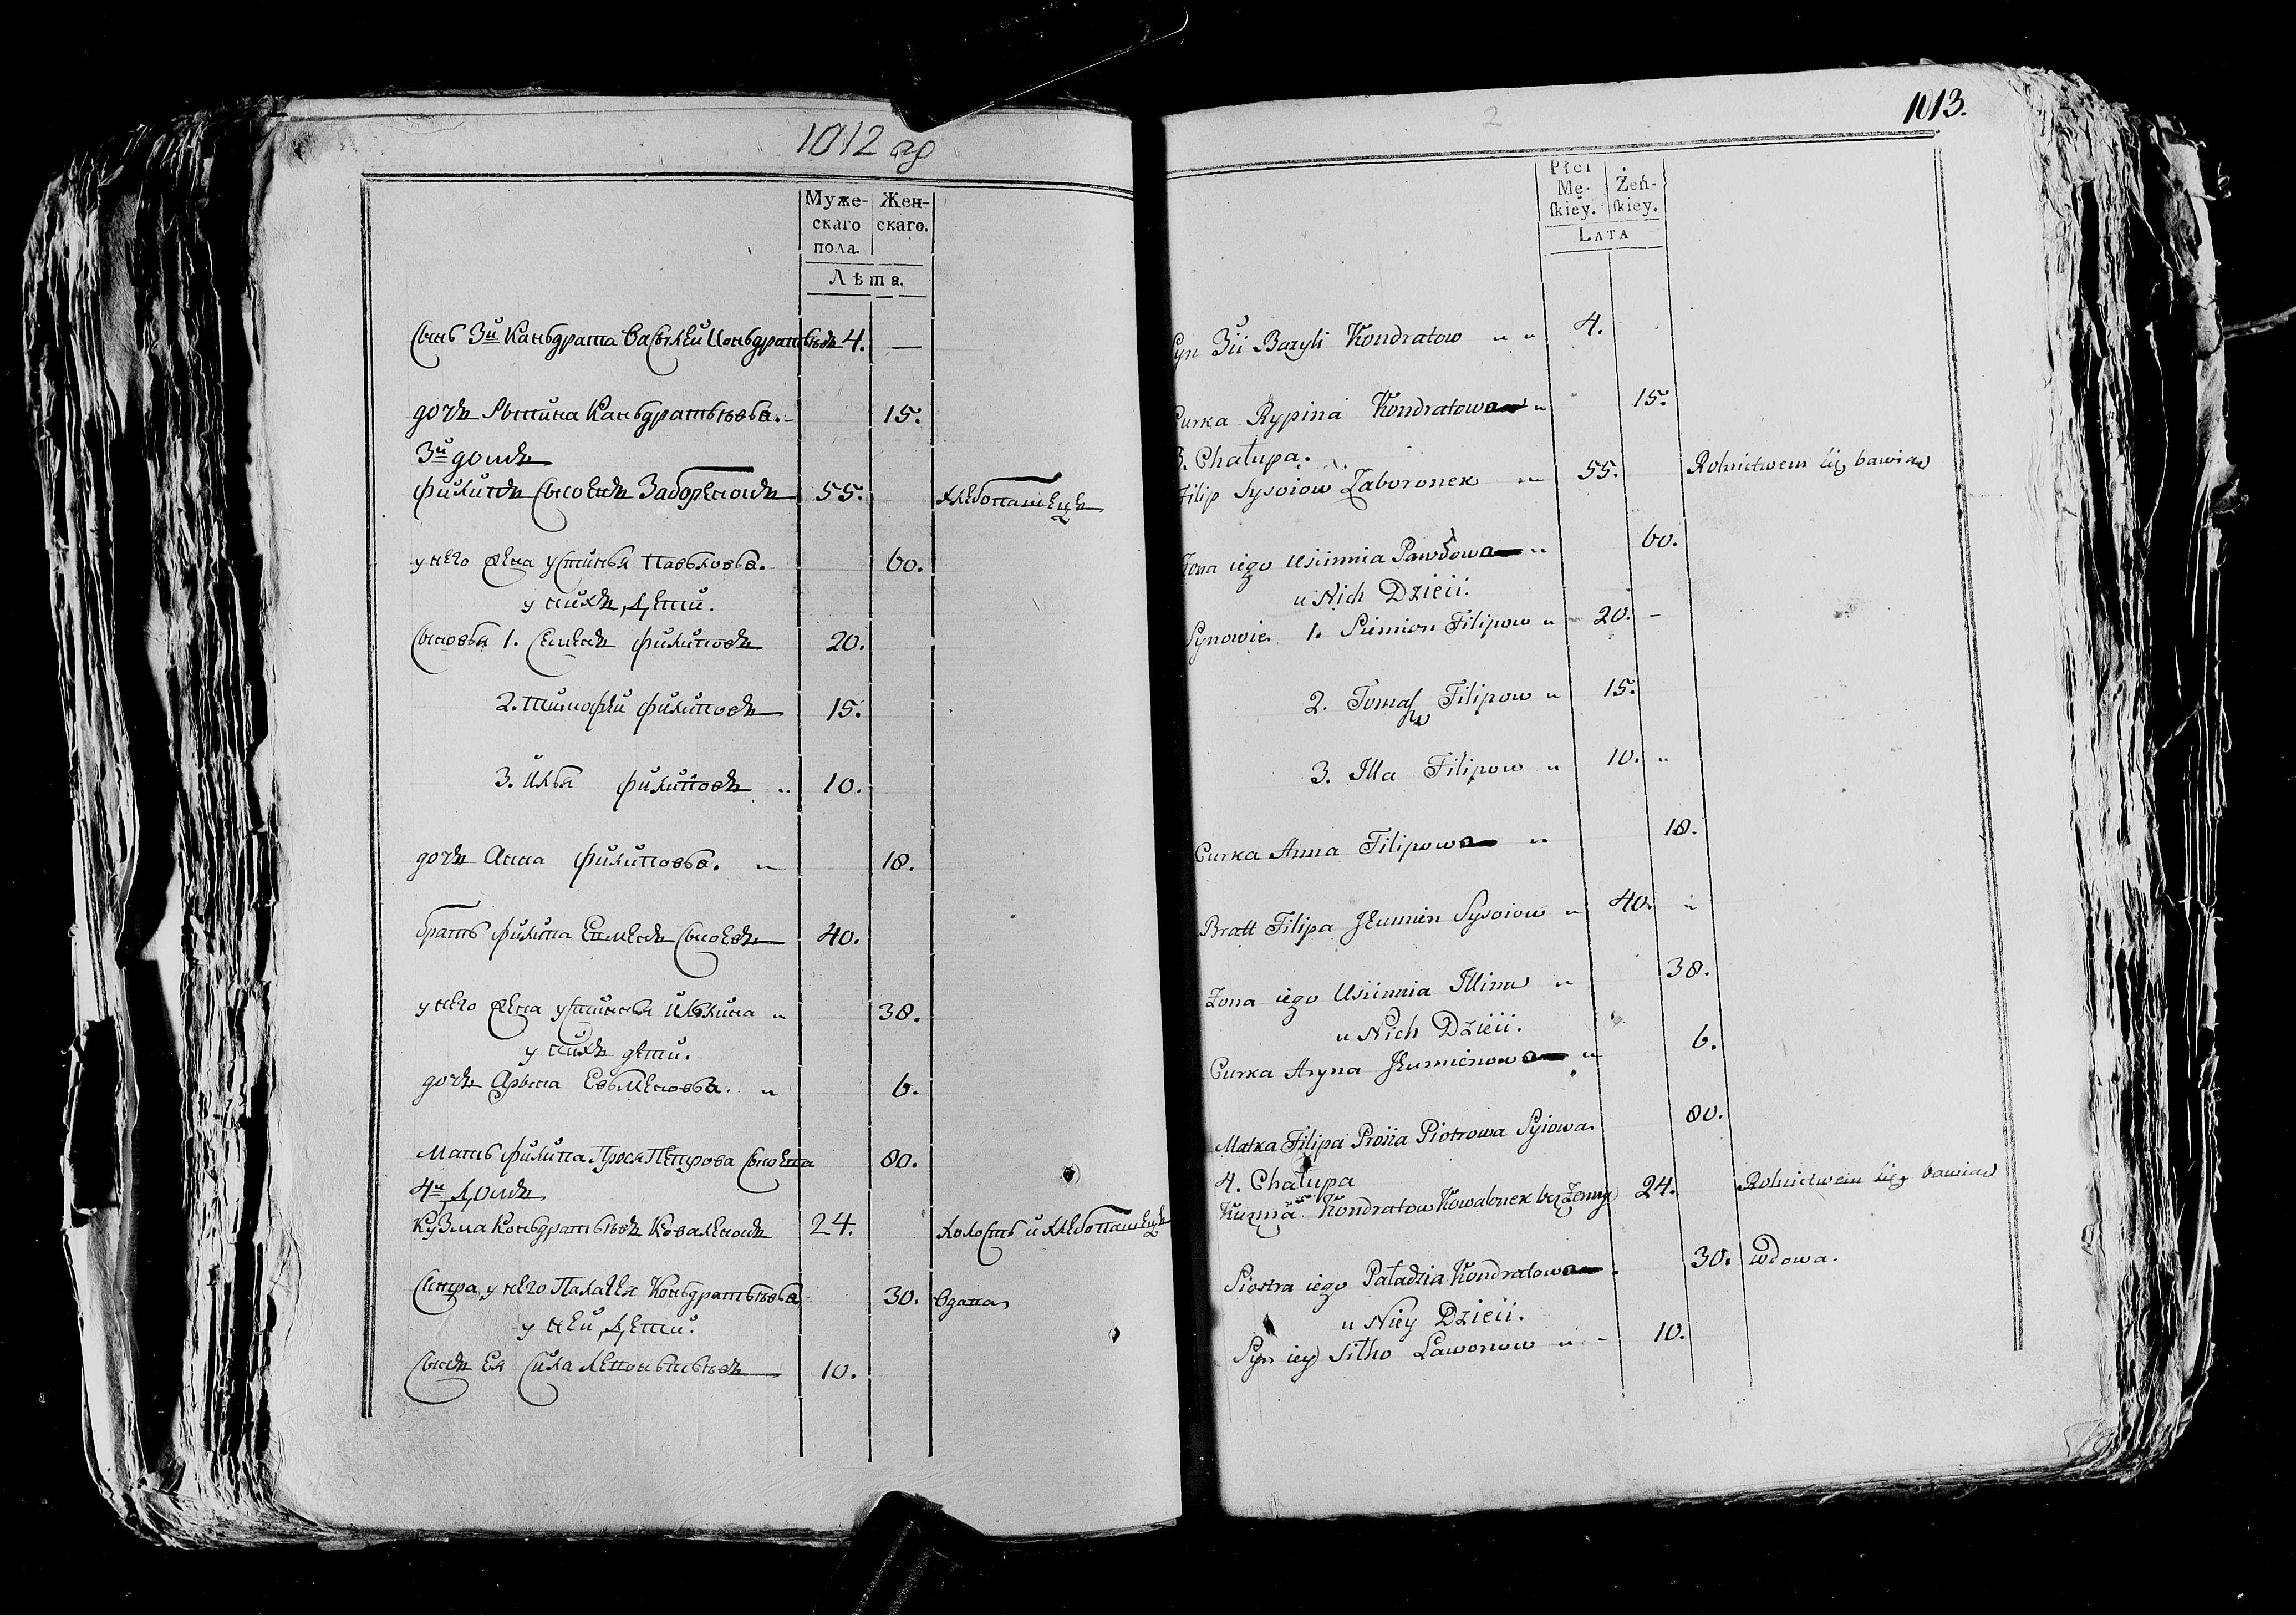 1012 об
Муже-
скаго
пола.
Жен-
скаго.
Лѣта.
Сынъ 3й Канъдрата Василей Конъдратьевъ 4. —
дочь Рыпина Канъдратьева. 15.
3й домъ
Филипъ Сысоевъ Заборенокъ 55. Хлебопашецъ
у него жена Устинья Павьлова. 60.
у нихъ дети.
Сыновья 1. Семенъ Филиповъ 20.
2. Тимофей Филиповъ 15.
3. Илья Филиповъ „ 10.
дочь Анна Филипова. „ 18.
братъ Филипа Сысоевъ 40.
у него жена Устинья Ильина „ 38.
у нихъ дети.
дочь Арына Евьменова. „ 6.
Мать Филипа Прося Петрова Сысоева 80.
4й домъ
Кузма Конъдратьевъ Коваленокъ 24. Холостъ и хлебопашецъ
Сестра у него Палагея Конъдратьева 30. вдова
у ней дети.
Сынъ ея Сила Леоньтьевъ 10.
2
1013.
Płci
Mę-
ſkiey.
Żeń-
ſkiey.
LATA
Syn 3ii Bazyli Kondratow „ „ 4.
Curka Rypina Kondratowa „ 15.
3. Chałupa.
Filip Sysoiow Zaboronek „ 55. Rolnictwem się bawiąc
Żona iego Usiinnia Pawłowa „ 60.
u Nich Dzieii.
Synowie 1. Siemion Filipow „ 20. –
2. Tomasz Filipow „ 15.
3. Illa Filipow „ 10. „
Curka Anna Filipowa „ 18.
Bratt Filipa Sysoiow „ 40. „
Żona iego Usiinnia Illina „ 38.
u Nich Dzieii.
Curka Aryna „ 6.
Matka Filipa Piotrowa 80.
4. Chałupa
Kuzma Kondratow Kowalonek bez Żenny 24. Rolnictwem się bawiąc
Siostra iego Paładzia Kondratowa 30. wdowa.
u Niey Dzieii.
Syn iey Silho Lawonow „ - 10.